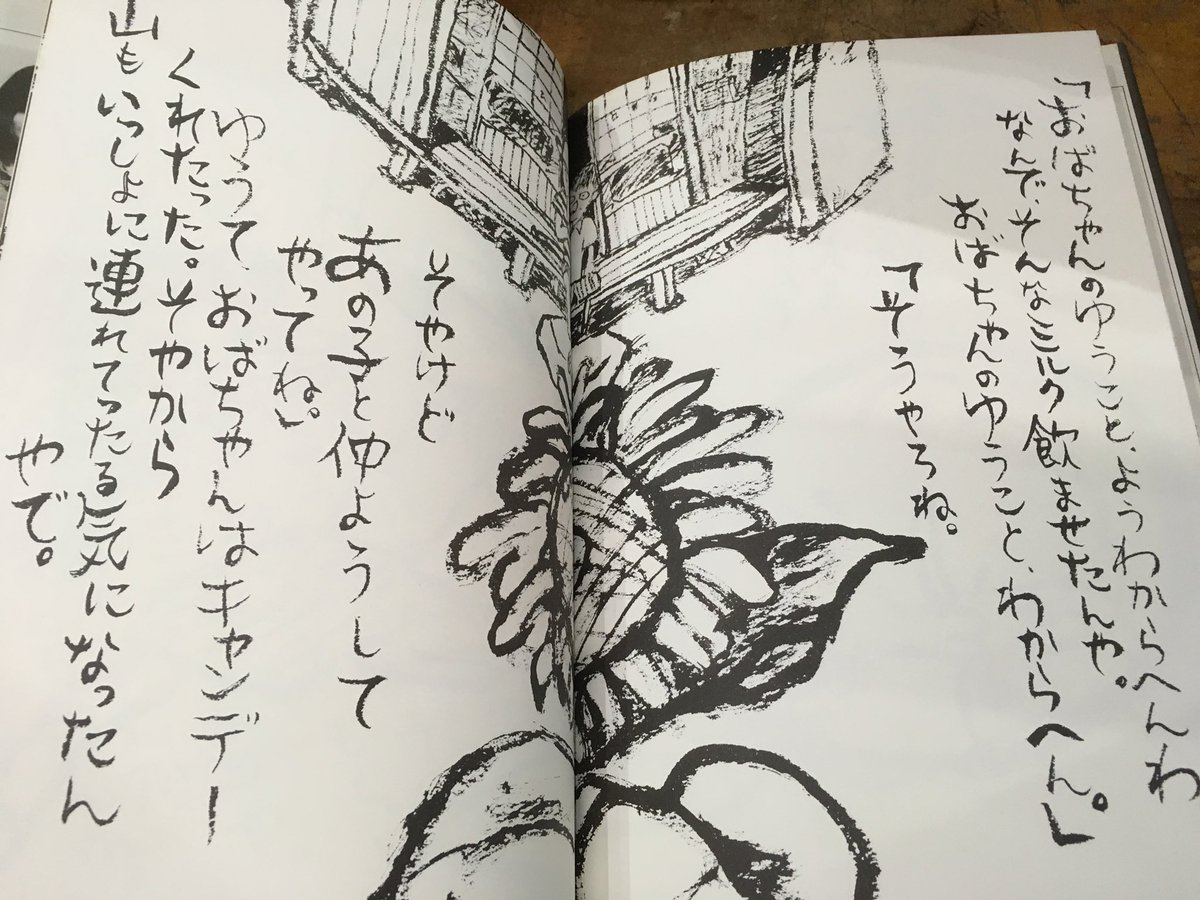 「おばちゃんのゆうこと、ようわからへんわ
なんで、そんなミルク飲ませたんや。
おばちゃんのゆうこと、わからへん。」
「そうやろね。
そやけど
あの子と仲ようして
やってね」
ゆうて、おばちゃんはキャンデー
くれたった。そやから
山もいっしょに連れてったる気になったん
やで。